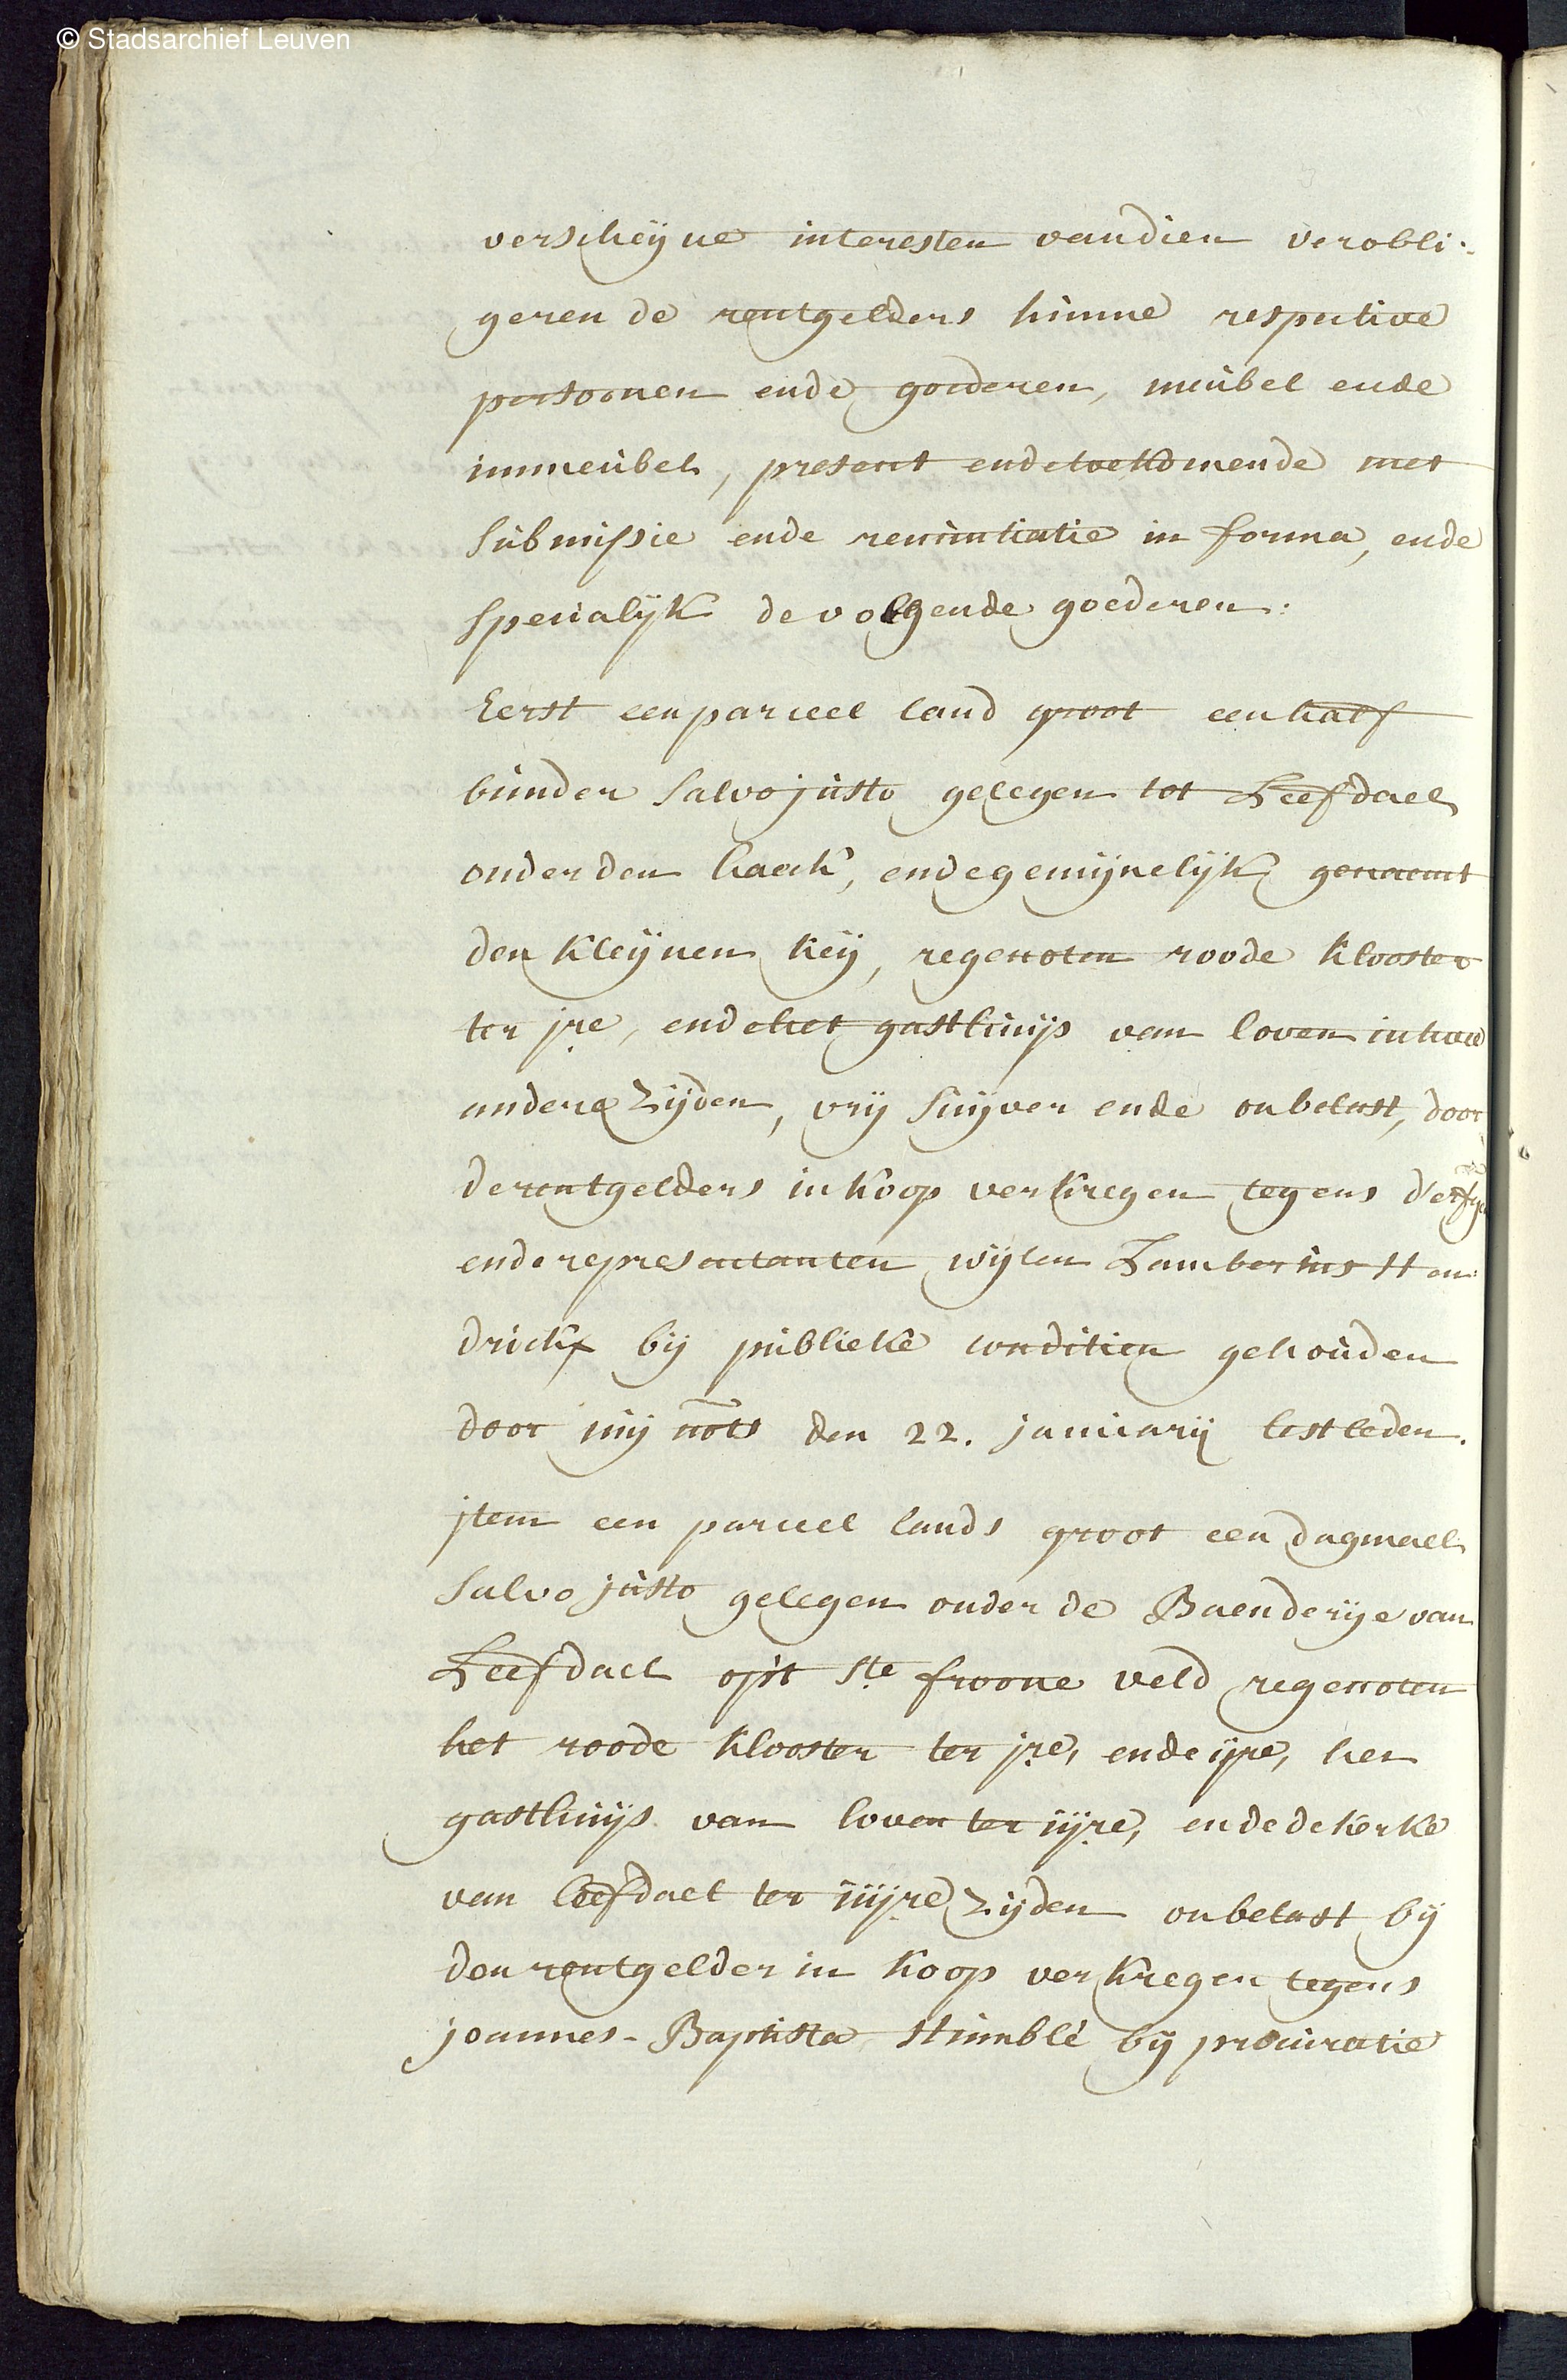 © Stadsarchief Leuven
verscheijne interesten vandien verobli:
geren de rentgelders hunne respective
persoonen ende goederen, meubel ende
immeubel, present ende toekomende met
submissie ende renuntiatie in forma, ende
specialijk de volgende goederen:
Eerst een parceel land groot een half
bunder salvo justo gelegen tot Leefdael
onder den haech, ende gemijnelijk genaemt
den kleijnen keij, regenoten roode klooster
ter jre, ende het gasthuijs van loven in twee
andere zijden, vrij suijver ende onbelast, door
de rentgelders in koop verkregen tegens d'erfge
ende representanten wijlen Lambertus Hen
drickx bij publieke conditien gehouden
door mij nots den 22. januarij lestleden.
jtem een parceel lands groot een dagmael
salvo justo gelegen onder de Baenderije van
Leefdael op't Ste froone veld regenoten
het roode klooster ter jre, ende ijre, het
gasthuijs van loven ter iijre, ende de kerke
van leefdael ter iiijre zijden onbelast bij
den rentgelder in koop verkregen tegens
joannes-Baptista Stimblé bij procuratie